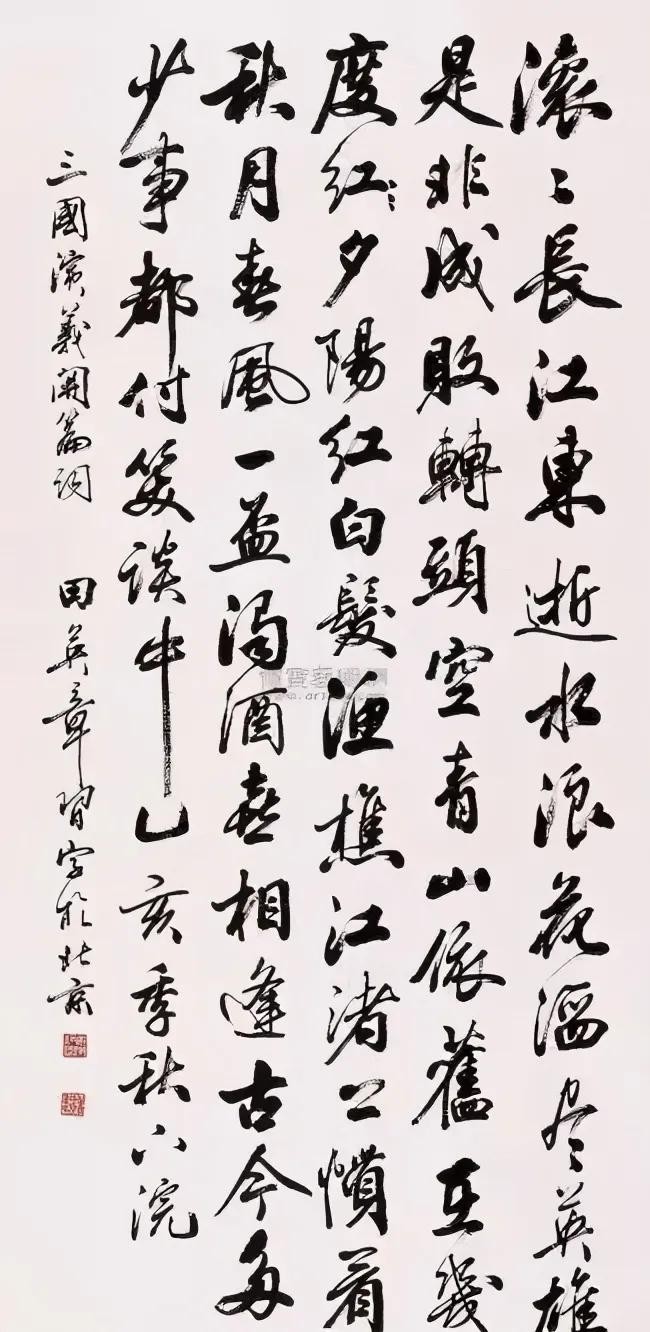 滚〻長江東逝水浪花淘尽英雄
是非成敗轉頭空青山依舊在幾
度红夕陽红白髮渔樵江渚上慣看
秋月春風一壶濁酒喜相逢古今多
少事都付笑談中乙亥季秋下浣
三國演義開篇詞 田英章習字於北京